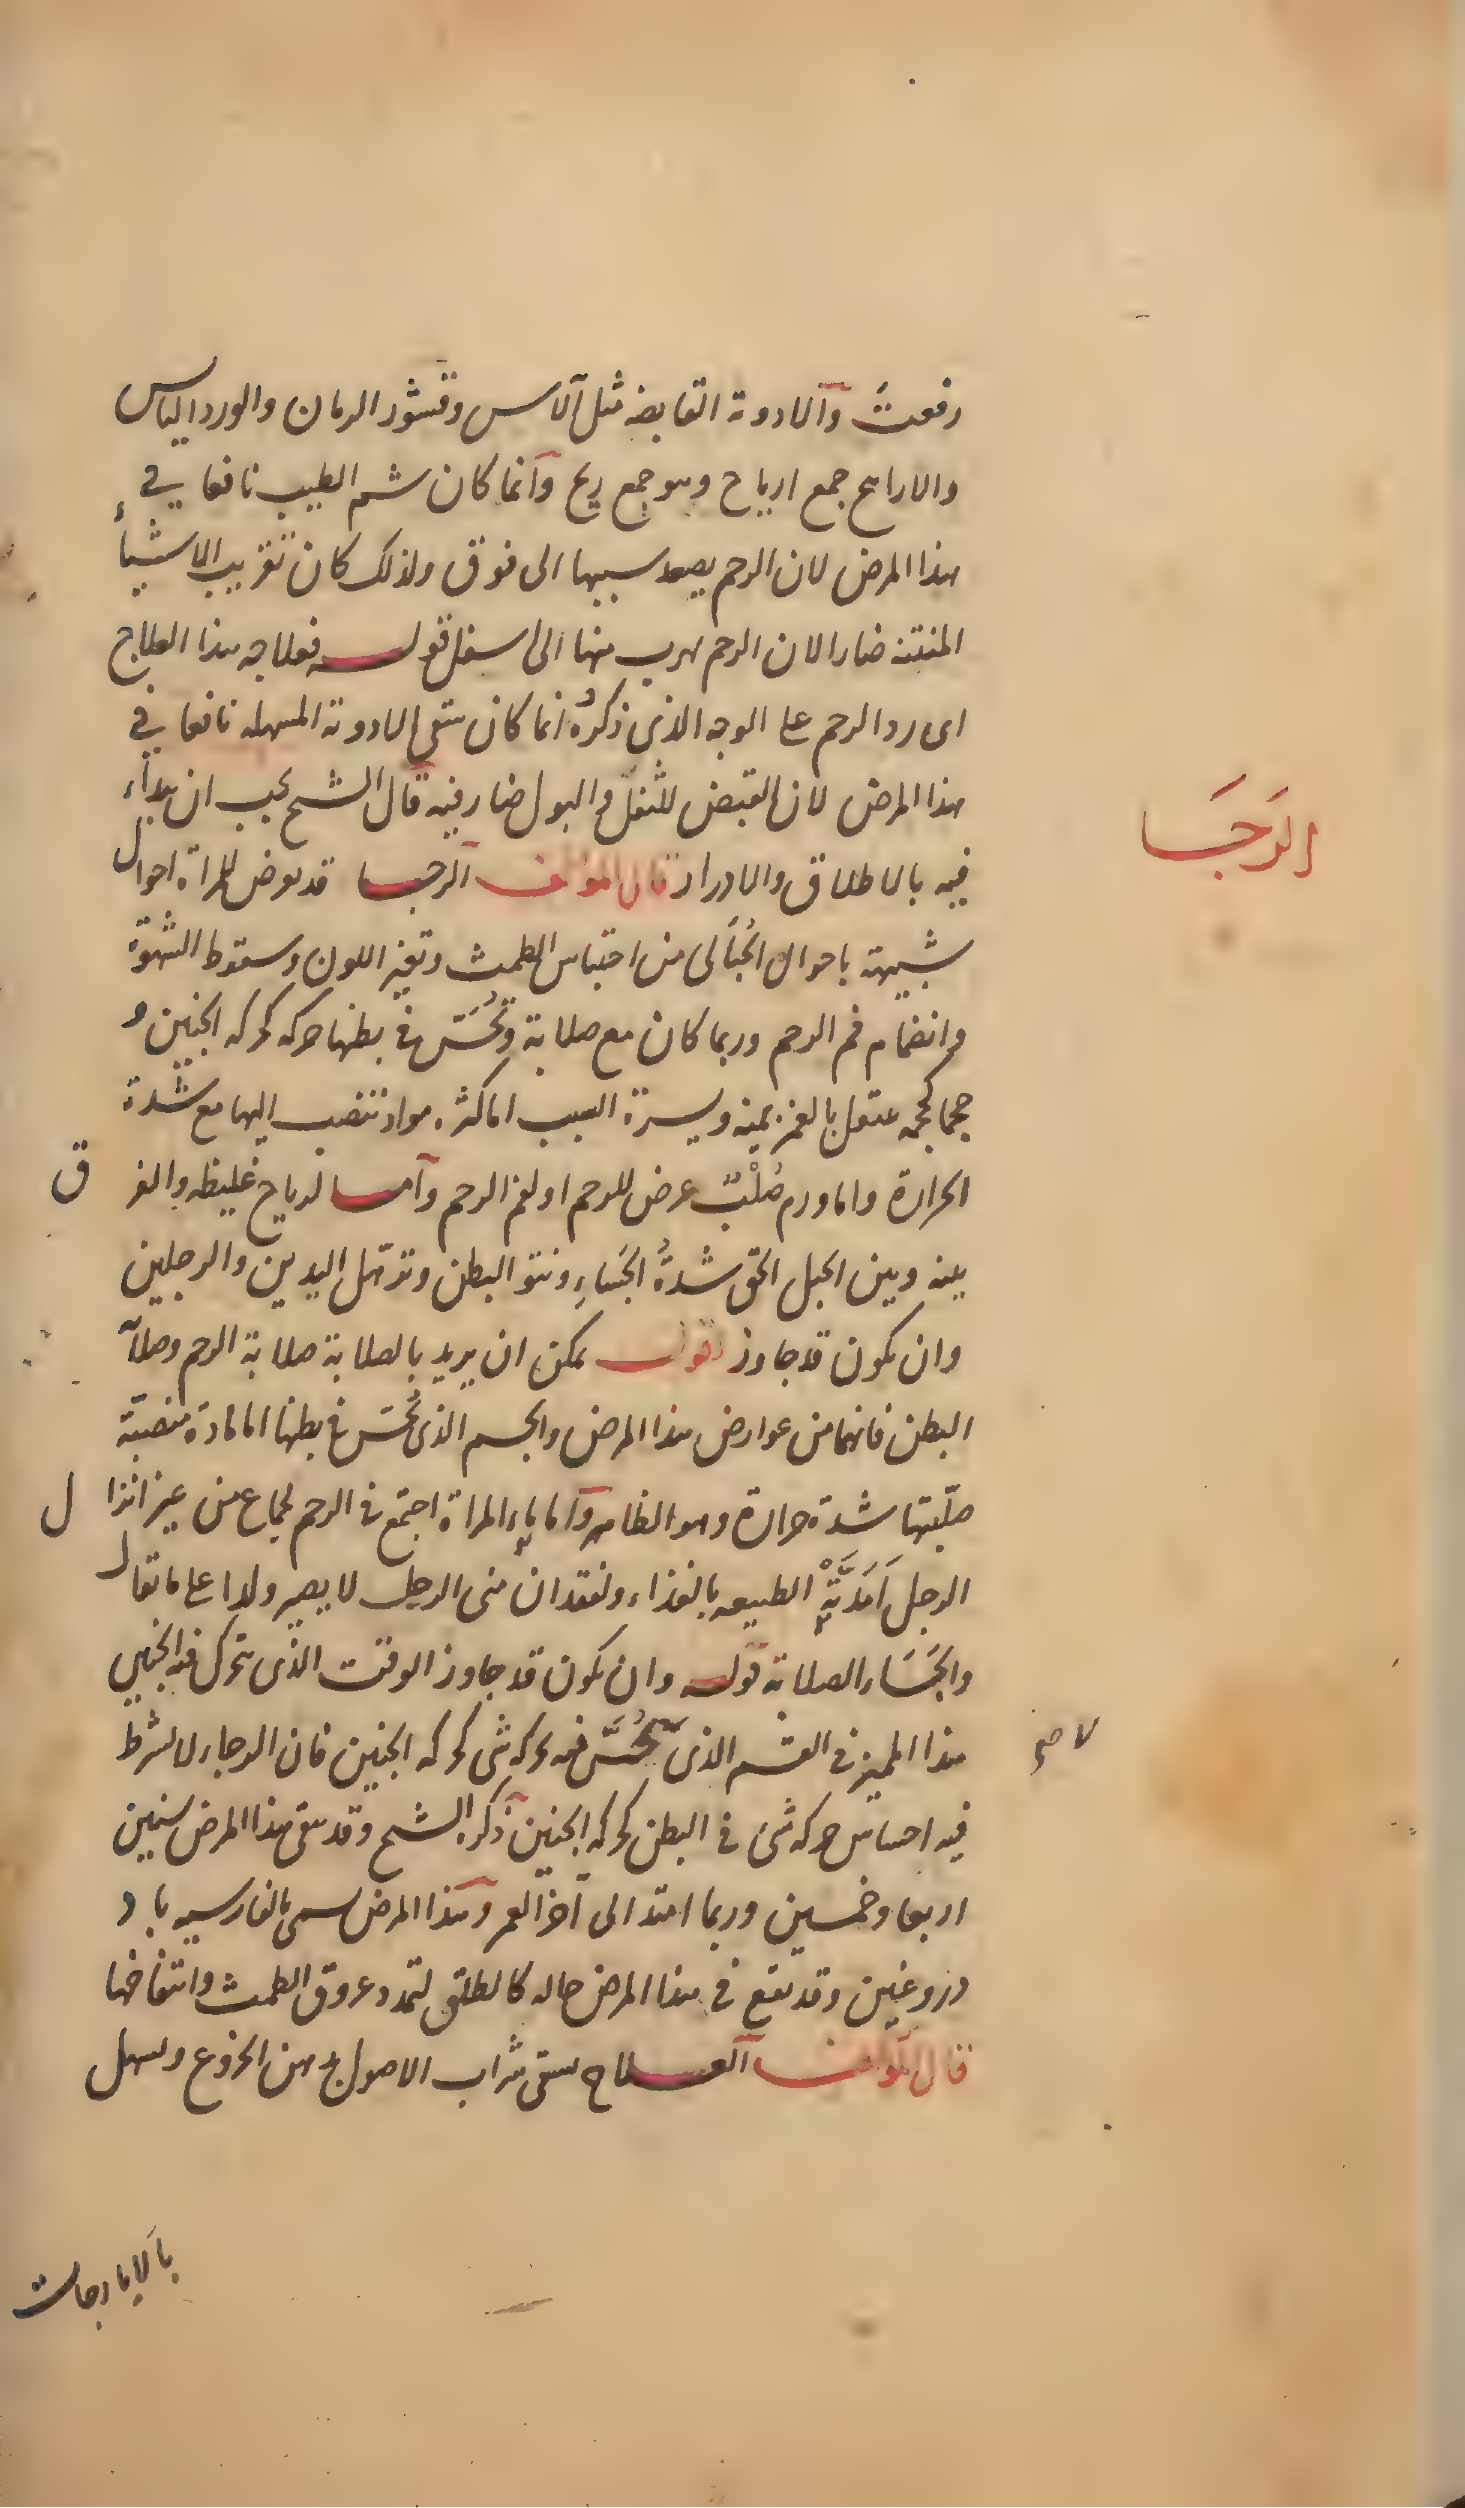 دفعتً والادوية القابضه مثل الآس وقشور الرمان والورد اليابس
والاراىح جمع ارياح وهو جمع ريح وانما كان شم الطيب نافعا في
هذا المرض لان الرحم يصعد سببها الى فوق ولذلك كان تقريب الاشياء
المنتنه ضارا لان الرحم يهرب منها الى سفل قوله فعلاجه هذا العلاج
اى رد الرحم على الوجه الذي ذكره انما كان سقى الادوية المسهله نافعا في
هذا المرض لان القبض للثفل والبول ضار فيه قال الشيخ يجب ان يبدأ
فيه بالاطلاق والادرار قال المؤلف الرجا قد يعرض للمراة احوال
شبيهة باحوال الحُبَالى من احتباس الطمث وتغير اللون وسقوط الشهوة
وانضمام فم الرحم وربما كان مع صلابة وتُحَسّ في بطنها حركه كحركه الجنين و
حجما كحجمه ينتقل بالغمز يمنه ويسرة السبب اما كثره مواد تنصب اليها مع شدة
الحرارة واما ورم صُلْبٌ عرض للرحم او لفم الرحم واما لرياح غليظه والفر ق
بينه وبين الحبل الحق شدةُ الجَسَاءِ ونتو البطن وترهّل اليدين والرجلين
وان يكون قد جاوز اقول يمكن ان يريد بالصلابة صلابة الرحم وصلا
البطن فانهما من عوارض هذا المرض والجسم الذى تُحسّ في بطنها اما مادة منصبّة
صلّبتها شدة حرارة وهو الظاهر واما ماء المراة اجتمع في الرحم لجماع من غير انزا ل
الرجل اَمَدَّتْهِ الطبيعه بالغذاء ولفقدان منى الرجل لا يصير ولدا على ما يقال
والجَسَاء الصلابة قوله وان يكون قد جاوز الوقت الذى يتحرك فيه الجنين
هذا المميز في القسم الذى يُحسَّ فيه بحركه شى كحركه الجنين فان الرجاء لا يشرط
لا صح
فيه احساس حركه شى في البطن كحركه الجنين ذكره الشيخ وقد يبقى هذا المرض سنين
اربعا وخمسين وربما امتد الى آخر العمر وهذا المرض يسمى بالفارسيه باد
دروغين وقد يقع في هذا المرض حاله كالطلق لتمدد عروق الطمث وانتفاخها
قال المؤلف العلاج يسقى شراب الاصول بدهن الخروع ويسهل
الرَجَا
بالايارجات